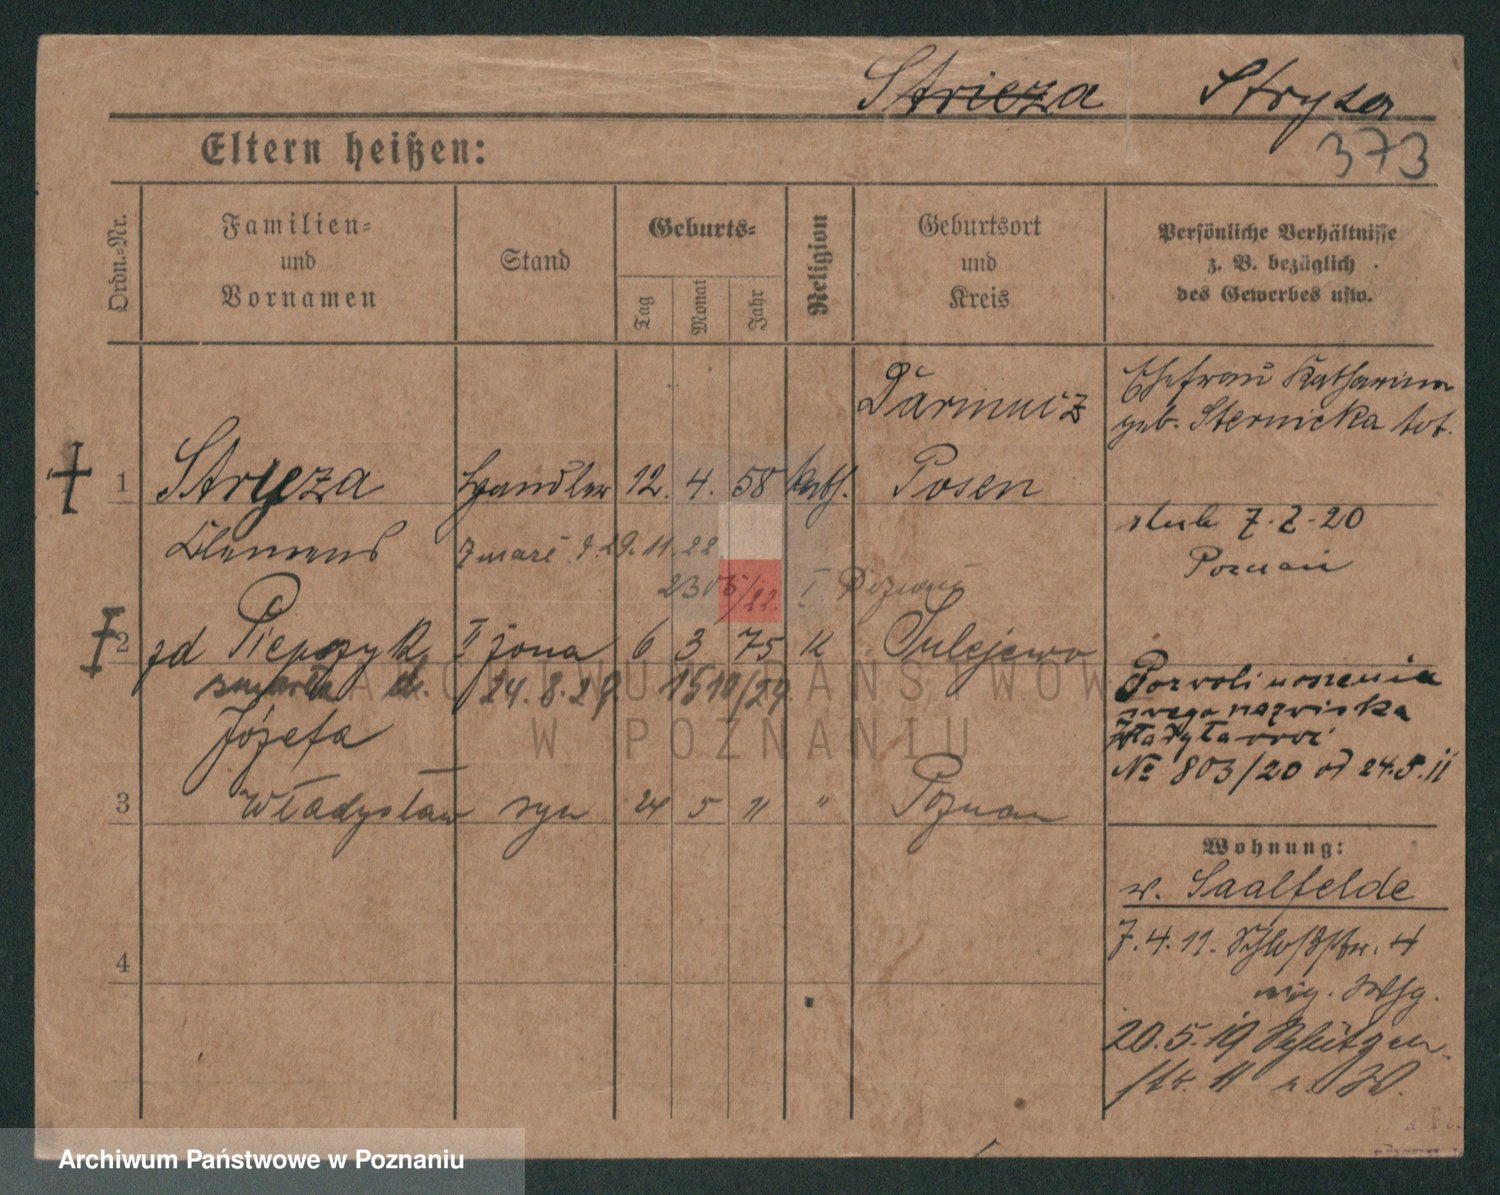 Stricza Stryza
373
Eltern heißen:
Ordn.-Nr.
Familien-
und
Vornamen
Stand
Geburts-
Tag
Monat
Jahr
Religion
Geburtsort
und
Kreis
Persönliche Verhältnisse
z. B. bezüglich
des Gewerbes usw.
Ehefrau Katharina
geb. Sternicka tot.
1 Stryeza Haendler 12. 4. 58 kath. Posen
Clemens zmarł d. 29. 11. 22
7. 2-20
Poznań
I Poznań
2 Piepszyk II żona 6 3 75 K Sulejewo
zmarła dn. 24. 8. 29. 1510/29.
Józefa
nazwiska
№ 803/20 od 24.5.11
3 Władysław syn 24 5 11 " Poznań
Wohnung:
w. Saalfelde
7.4.11. Schloßstr. 4
4
20.5.19 Schützen-
str. 11
ARCHIWUM PAŃSTWOWE
W POZNANIU
Archiwum Państwowe w Poznaniu